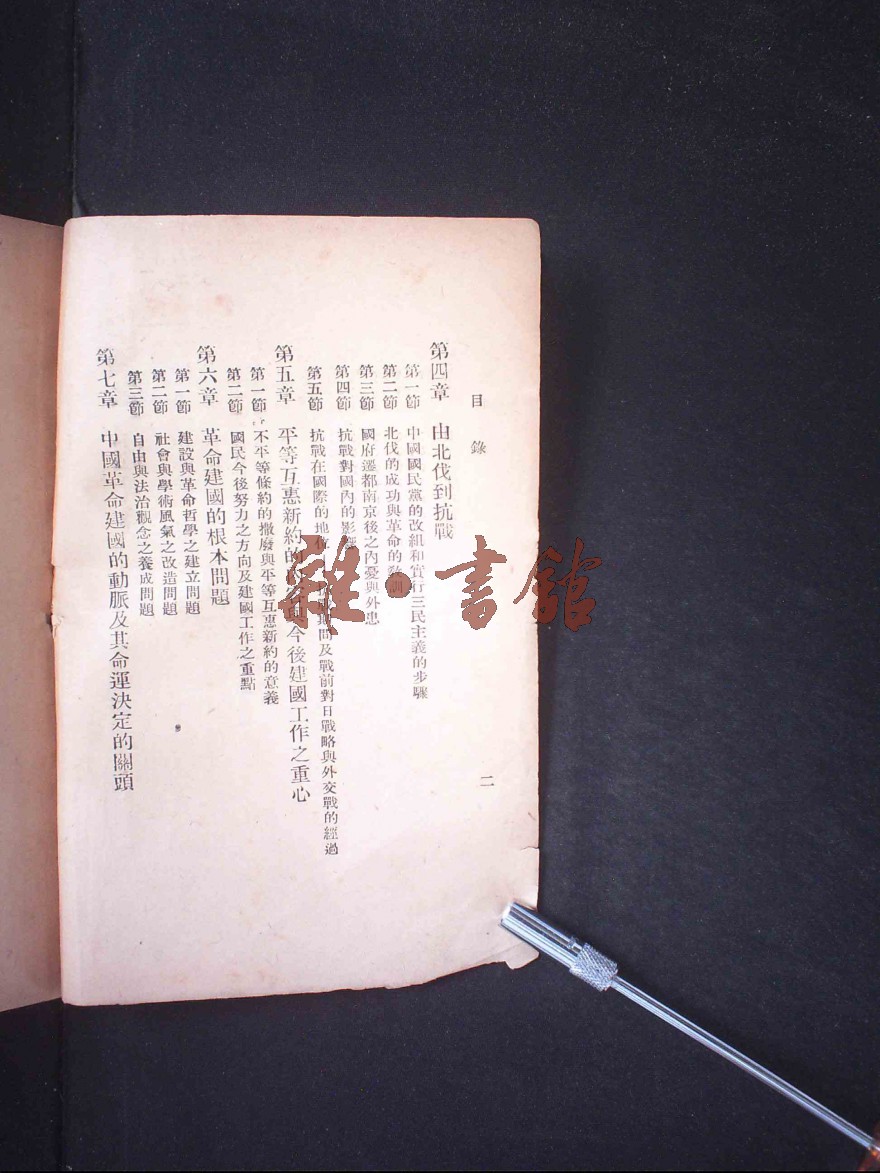 目錄
二
第四章 由北伐到抗戰
第一節 中國國民黨的改組和實行三民主義的步驟
第二節 北伐的成功與革命的教訓
第三節 國府遷都南京後之內憂與外患
第四節 抗戰對國內的影響
第五節 抗戰在國際的地位 期間及戰前對日戰略與外交戰的經過
第五章 平等互惠新約的 與今後建國工作之重心
第一節 不平等條約的撤廢與平等互惠新約的意義
第二節 國民今後努力之方向及建國工作之重點
第六章 革命建國的根本問題
第一節 建設與革命哲學之建立問題
第二節 社會與學術風氣之改造問題
第三節 自由與法治觀念之養成問題
第七章 中國革命建國的動脈及其命運決定的關頭
雜·書館